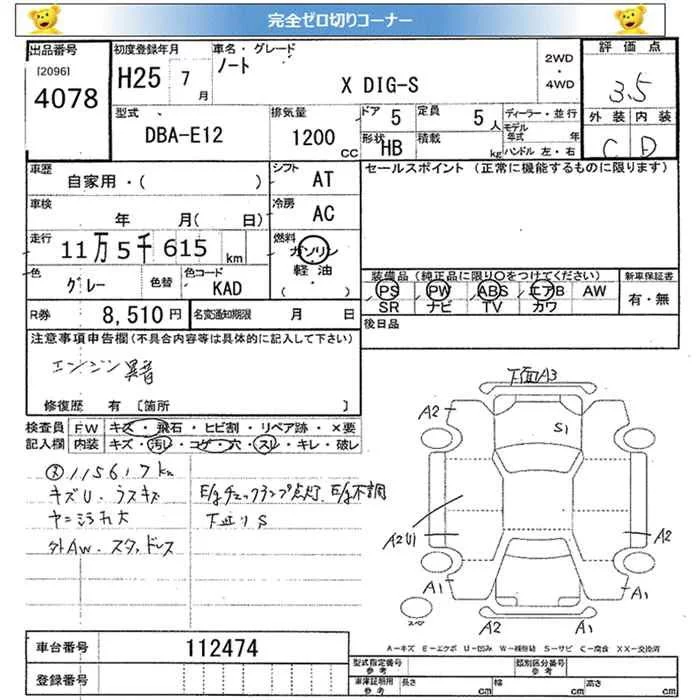 完全ゼロ切りコーナー
出品番号 初度登録年月 車名・グレード 2WD・4WD 評価点
[2096] 4078 H25 7月 ノート X DIG-S 3.5
型式 排気量 ドア 5 定員 5人 ディーラー・並行 外装 内装
DBA-E12 1200cc 形状 HB 積載 kg モデル年式 年 ハンドル 左・右 C D
車歴 自家用・( ) シフト AT セールスポイント (正常に機能するものに限ります)
車検 年 月( 日) 冷房 AC
走行 11万5千615km 燃料 ガソリン 軽油 ( )
色 グレー 色替 色コード KAD
装備品 (純正品に限り○をつけてください) 新車保証書
PS PW ABS エアB AW 有・無
SR ナビ TV カワ
R券 8,510円 名変通知期限 月 日 後日品
注意事項申告欄(不具合内容等は具体的に記入して下さい)
エンジン異音
修復歴 有 [箇所 ]
検査員記入欄 FW キズ・飛石・ヒビ割・リペア跡・×要
内装 キズ・汚レ・コゲ・穴・スレ・キレ・破レ
115617km
キズU・ウスキズ E/gチェックランプ点灯、E/g不調
ヤニ汚れ大 下廻りS
外AW・スタッドレス
下面A3
A2
S1
A2U1 A2
A1 A1
スペ A2 A1
A-キズ E-エクボ U-凹み W-補修跡 S-サビ C-腐食 XX-交換済
車台番号 112474
登録番号
型式指定番号 参考 類別区分番号 参考
車庫証明用 参考 長さ cm 幅 cm 高さ cm